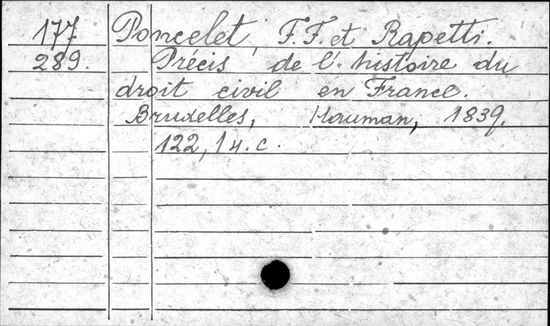 177 Poncelet, F. F. et Rapetti.
289. Précis de l'histoire du
droit civil en France.
Bruxelles, Hauman, 1839.
122, 1 4. c.